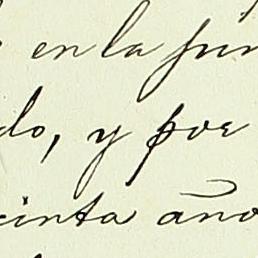 en la jun
do, y por
cinta año